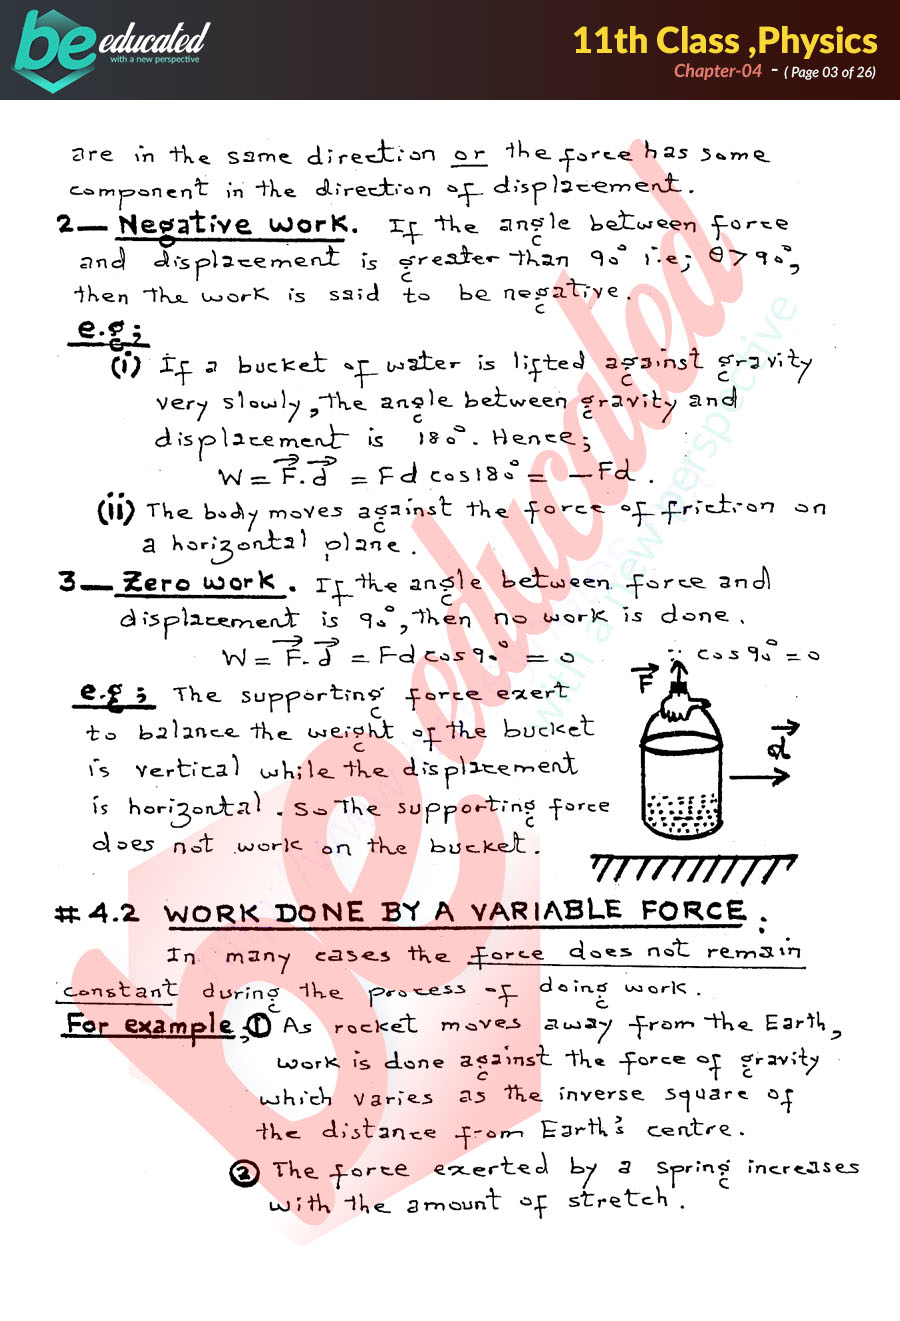 be educated
with a new perspective
11th Class ,Physics
Chapter-04 - ( Page 03 of 26)
are in the same direction or the force has some
component in the direction of displacement.
2— Negative work. If the angle between force
and displacement is greater than 90° i.e; θ > 90°,
then the work is said to be negative.
e.g;
(i) If a bucket of water is lifted against gravity
very slowly, the angle between gravity and
displacement is 180°. Hence;
W = F⃗.d⃗ = Fd cos180° = −Fd.
(ii) The body moves against the force of friction on
a horizontal plane.
3— Zero work. If the angle between force and
displacement is 90°, then no work is done.
W = F⃗.d⃗ = Fd cos90° = 0 ∵ cos90° = 0
e.g; The supporting force exert
to balance the weight of the bucket
is vertical while the displacement
is horizontal. So the supporting force
does not work on the bucket.
F⃗
d⃗
# 4.2 WORK DONE BY A VARIABLE FORCE.
In many cases the force does not remain
constant during the process of doing work.
For example, ① As rocket moves away from the Earth,
work is done against the force of gravity
which varies as the inverse square of
the distance from Earth's centre.
② The force exerted by a spring increases
with the amount of stretch.
be educated
with a new perspective